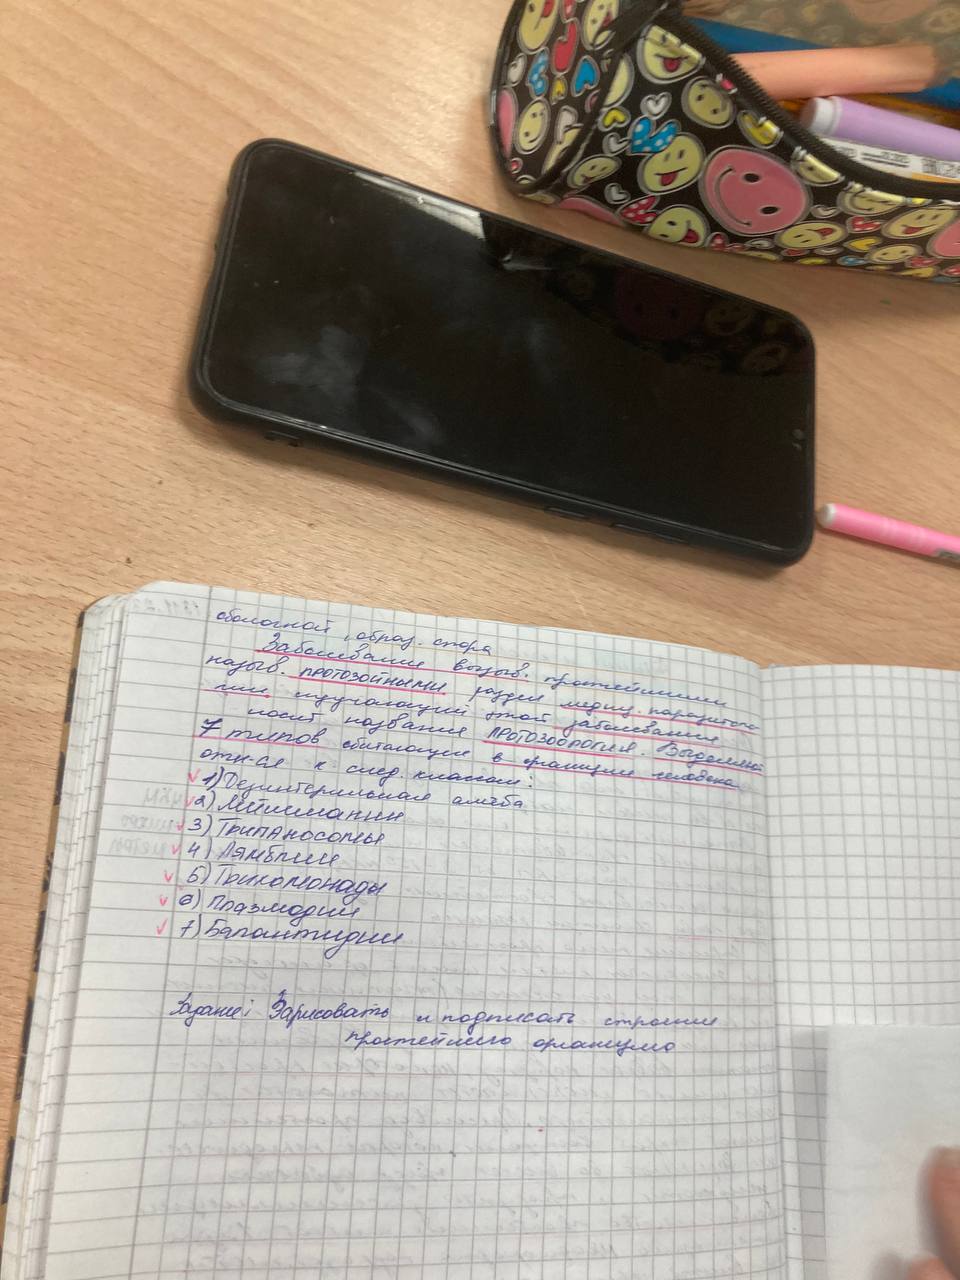 оболочкой, образ. спора
Заболевание вызыв. простейшими
назыв. протозойными раздел медиц. паразитоло
гии изучающий этой заболевания
носит название протозоология. Выделяют
7 типов обитающие в организме человека
отн-ся к след. классам:
1) Дезинтерильная амёба
2) Лейшмании
3) Трипаносомы
4) Лямблии
5) Трихомонады
6) Плазмодии
7) Балантидии
Задание: Зарисовать и подписать строение
простейшего организма